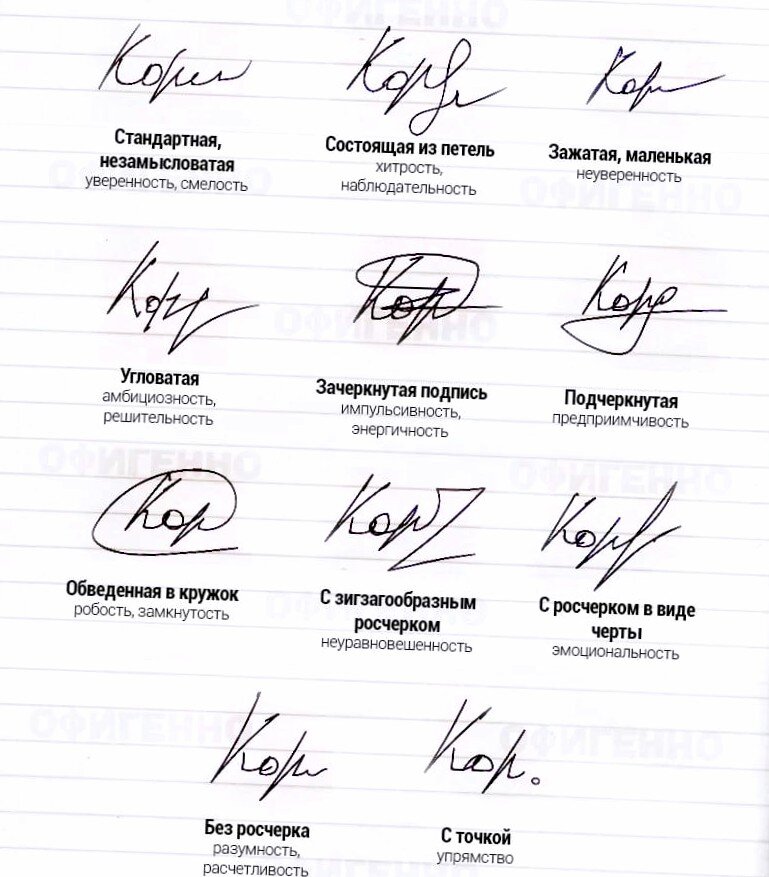 ОФИГЕННО
Кори
Кор
Кор
Стандартная,
незамысловатая
уверенность, смелость
Состоящая из петель
хитрость,
наблюдательность
Зажатая, маленькая
неуверенность
ОФИГЕННО
ОФИГЕННО
Кор
Кор
Кор
ОФИГЕННО
Угловатая
амбициозность,
решительность
Зачеркнутая подпись
импульсивность,
энергичность
Подчеркнутая
предприимчивость
ОФИГЕННО
ОФИГЕННО
Кор
Кор
Кор
Обведенная в кружок
робость, замкнутость
С зигзагообразным
росчерком
неуравновешенность
С росчерком в виде
черты
эмоциональность
ОФИГЕННО
ОФИГЕННО
ОФИГЕННО
Кор
Кор.
Без росчерка
разумность,
расчетливость
С точкой
упрямство
ОФИГЕННО